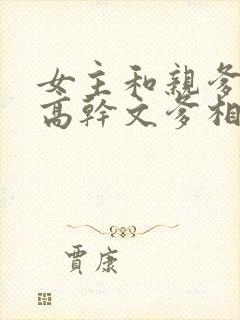 女主和親爹
高幹文爹相
賈康